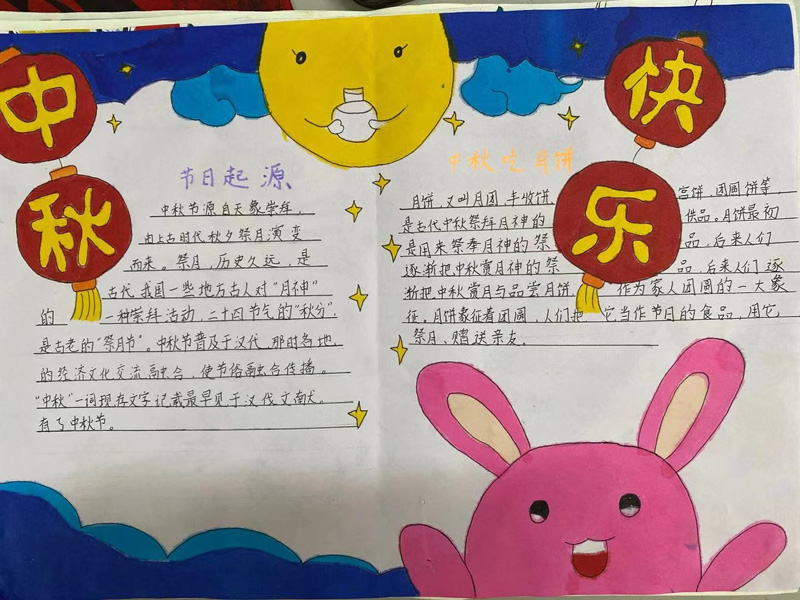 中秋快乐
节日起源
中秋节源自天象崇拜，
由上古时代秋夕祭月演变
而来。祭月，历史久远，是
古代我国一些地方古人对“月神”
的一种崇拜活动，二十四节气的“秋分”，
是古老的“祭月节”。中秋节普及于汉代，那时各地
的经济文化交流融合，使节俗融合传播。
“中秋”一词现存文字记载最早见于汉代文献。
有了中秋节。
中秋吃月饼
月饼，又叫月团，丰收饼，宫饼，团圆饼等，
是古代中秋祭拜月神的供品。月饼最初
是用来祭奉月神的祭品，后来人们
逐渐把中秋赏月神的祭品，后来人们逐
渐把中秋赏月与品尝月饼作为家人团圆的一大象
征。月饼象征着团圆，人们把它当作节日的食品，用它
祭月、赠送亲友。